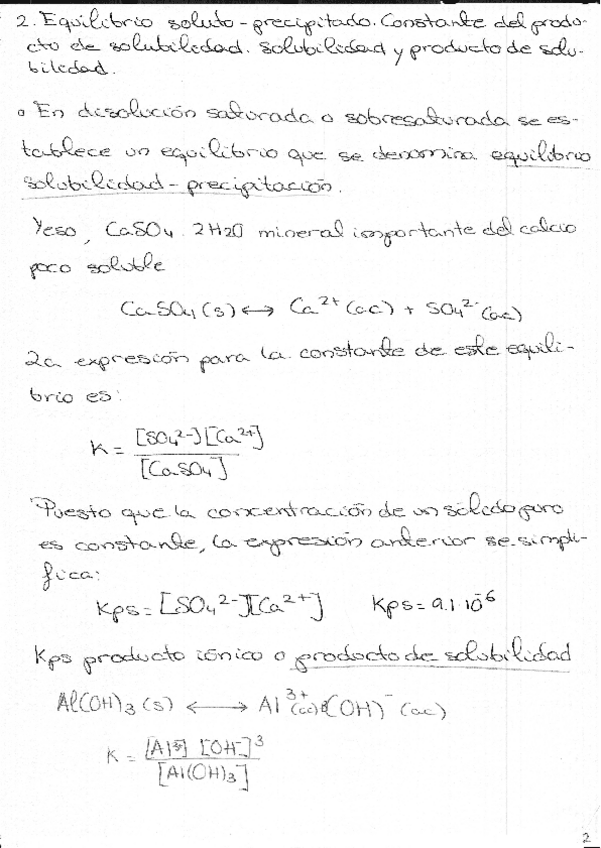 2. Equilibrio soluto - precipitado. Constante del produ-
cto de solubilidad. Solubilidad y producto de solu-
bilidad.
o En disolución saturada o sobresaturada se es-
tablece un equilibrio que se denomina equilibrio
solubilidad - precipitación.
Yeso, CaSO4 . 2H2O mineral importante del calcio
poco soluble
CaSO4 (s) ↔ Ca²⁺ (ac) + SO4²⁻ (ac)
La expresión para la constante de este equili-
brio es:
K = [SO4²⁻][Ca²⁺]
[CaSO4]
Puesto que la concentración de un sólido puro
es constante, la expresión anterior se simpli-
fica:
Kps = [SO4²⁻][Ca²⁺] Kps = 9.1·10⁻⁶
Kps producto iónico o producto de solubilidad
Al(OH)3 (s) ⟷ Al³⁺ (ac) (OH)⁻ (ac)
K = [Al³⁺] [OH⁻]³
[Al(OH)3]
2